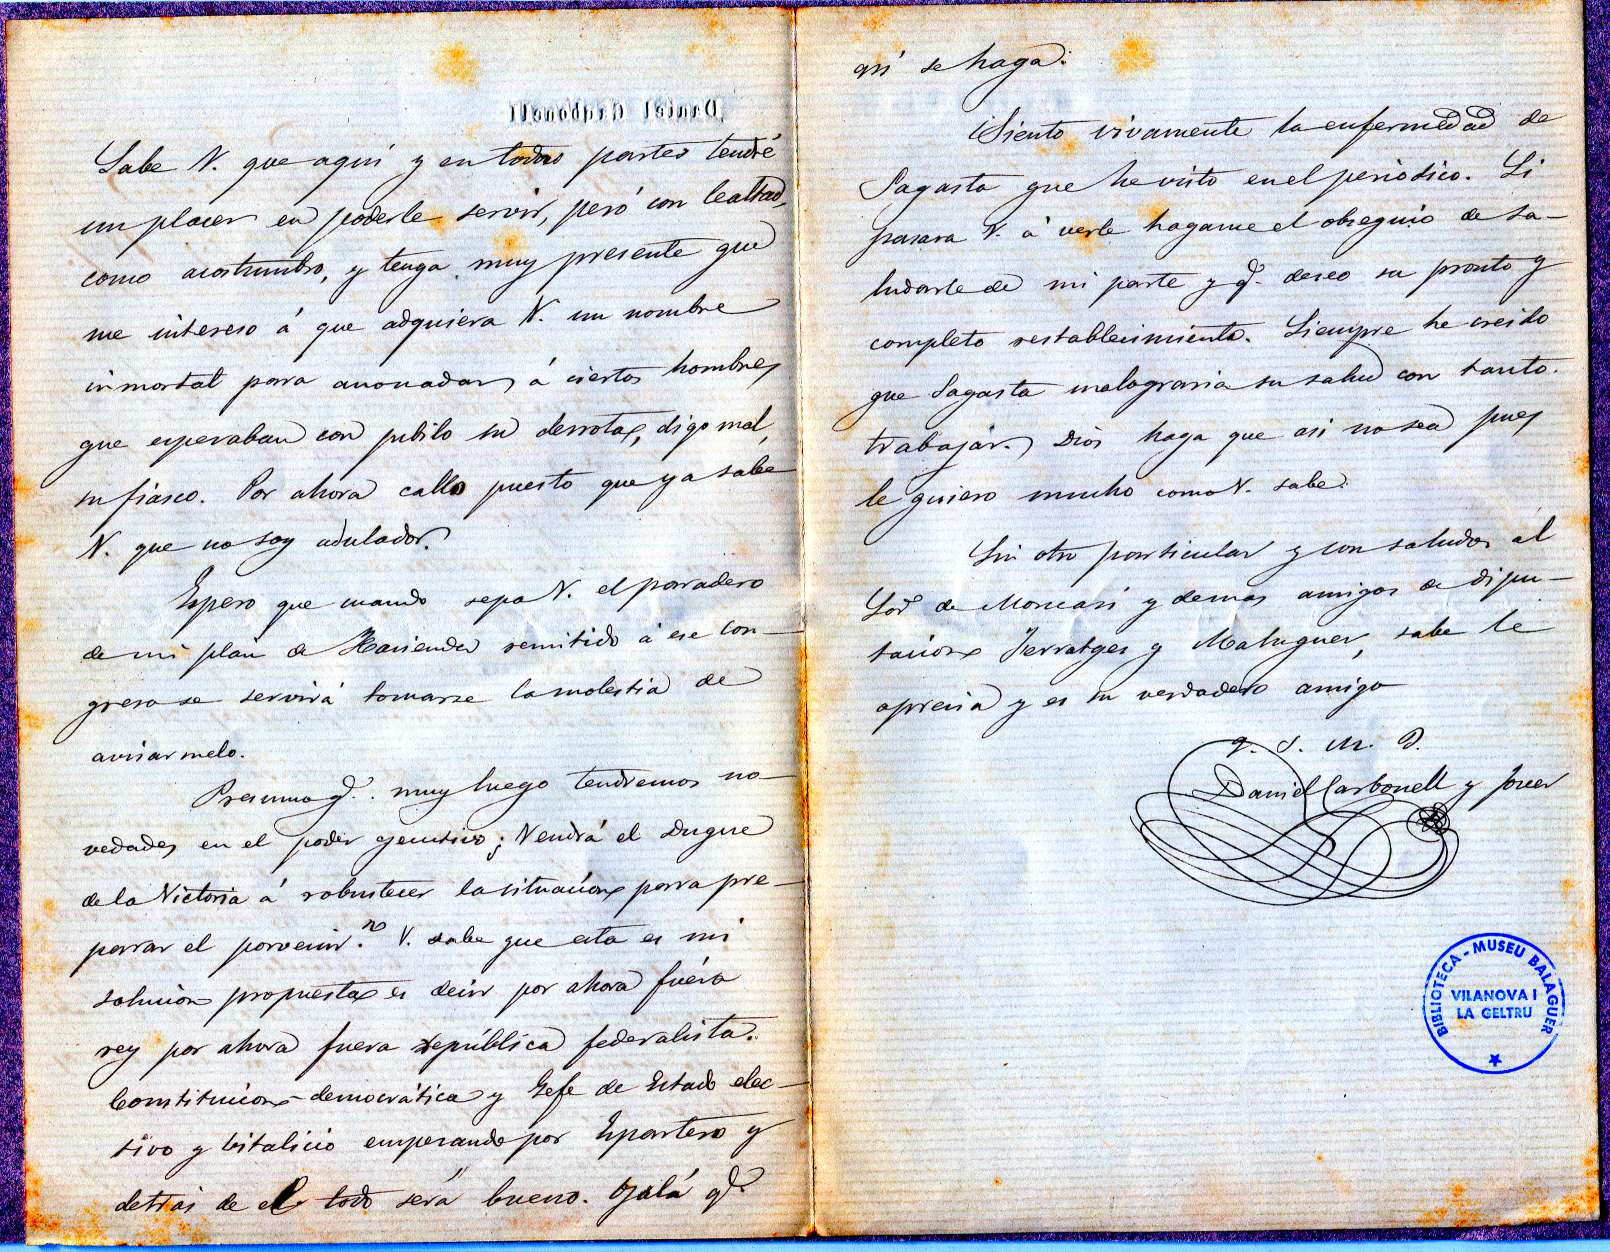 Daniel Carbonell
Sabe V. que aquí y en todas partes tendré
un placer en poderle servir, peró con lealtad,
como acostumbro, y tenga muy presente que
me intereso á que adquiera V. un nombre
inmortal para anonadar á ciertos hombres
que esperaban con jubilo su derrota, digo mal,
su fiasco. Por ahora callo puesto que ya sabe
V. que no soy adulador.
Espero que cuando sepa V. el paradero
de mi plan de Hacienda remitido á ese Con-
greso se servirá tomarse la molestia de
avisarmelo.
Presumo q.e muy luego tendremos no-
vedades en el poder ejecutivo; Vendrá el Duque
de la Victoria á robustecer la situacion para pre-
parar el porvenir? V. sabe que esta es mi
solucion propuesta es decir por ahora fuéra
rey por ahora fuera república federalista.
Constitucion democrática y Gefe de Estado elec-
tivo y bitalicio empezando por Espartero y
detrás de el todo será bueno. Ojalá q.e
así se haga.
Siento vivamente la enfermedad de
Sagasta que he visto en el periodico. Si
pasara V. á verle hagame el obsequio de sa-
ludarle de mi parte y q.e deseo su pronto y
completo restablecimiento. Siempre he creido
que Sagasta malograria su salud con tanto
trabajár. Diós haga que asi no sea pues
le quiero mucho como V. sabe.
Sin otro particular y con saludos al
Sor. de Moncasi y demas amigos de dipu-
tacion Ferratges y Maluquer, sabe le
aprecia y es su verdadero amigo
q. S. M. B.
Daniel Carbonell y Jover
BIBLIOTECA - MUSEU BALAGUER
VILANOVA I
LA GELTRU